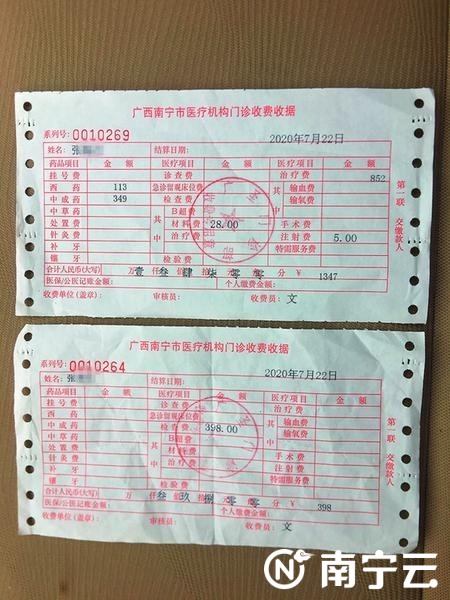 广西南宁市医疗机构门诊收费收据
系列号:0010269 2020年7月22日
姓名: 张 结算日期:
药品项目 金额 医疗项目 金额 医疗项目 金额
挂号费 诊查费 治疗费 852
西药 113 急诊留观床位费 其中 输血费
中成药 349 检查费 输氧费
中草药 其中 B超费 手术费
处置费 材料费 28.00 注射费 5.00
针灸费 治疗费 特需服务费
补牙
镶牙 检验费
合计人民币(大写) 万 仟壹 佰叁 拾肆 元柒 角零 分零 ¥: 1347
医保/公医记账金额: 个人缴费金额:
收费单位(盖章): 审核员: 收费员: 文
第一联 交缴款人
广西南宁市医疗机构门诊收费收据
系列号:0010264 2020年7月22日
姓名: 张 结算日期:
药品项目 金额 医疗项目 金额 医疗项目 金额
挂号费 诊查费 治疗费
西药 急诊留观床位费 其中 输血费
中成药 检查费 398.00 输氧费
中草药 其中 B超费 手术费
处置费 材料费 注射费
针灸费 治疗费 特需服务费
补牙
镶牙 检验费
合计人民币(大写) 万 仟 佰叁 拾玖 元捌 角零 分零 ¥: 398
医保/公医记账金额: 个人缴费金额:
收费单位(盖章): 审核员: 收费员: 文
第一联 交缴款人
南宁云